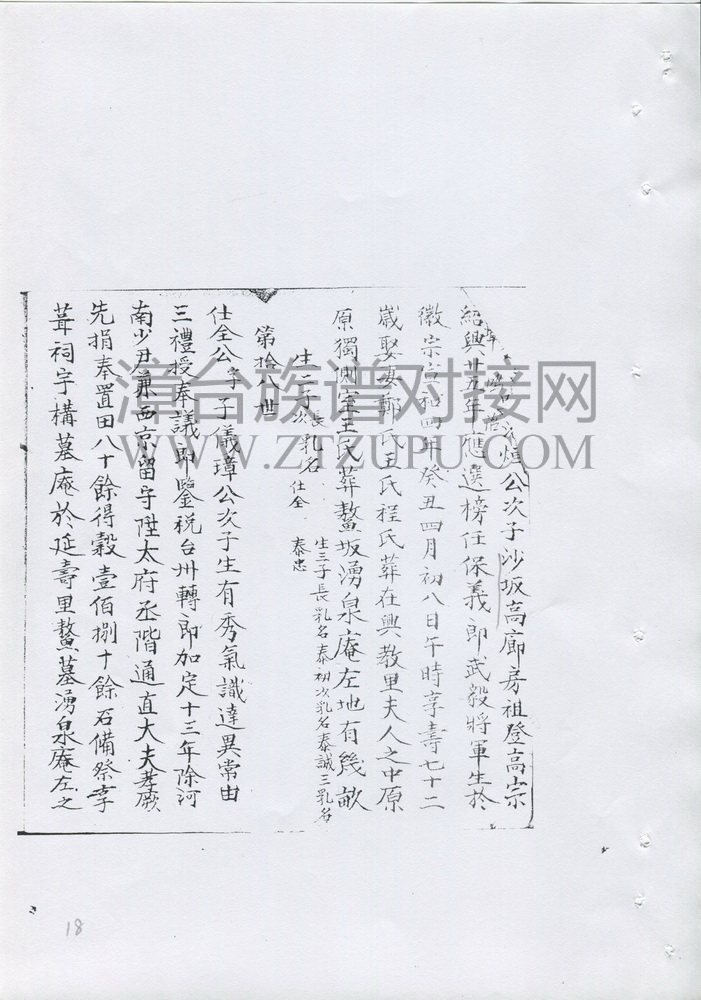 恒公次子沙坂高廊房祖登高宗
紹興廿五年應選榜任保義郎武毅將軍生於
徽宗宣和四年癸丑四月初八日午時享壽七十二
歲娶妻鄭氏王氏程氏葬在興教里夫人之中原
原獨側室王氏葬鰲坂湧泉庵左地有幾畝
生二子長乳名仕全
次乳名泰忠
生三子長乳名泰初次乳名泰誠三乳名
第拾八世
仕全公字子儀璋公次子生有秀氣識達異常由
三禮授奉議郎鑒税台州轉郎加定十三年除河
南少尹兼西京留守陞太府丞階通直大夫孝厥
先捐奉置田八十餘得穀壹佰捌十餘石備祭享
葺祠宇構墓庵於延壽里鰲墓湧泉庵左之
漳台族谱对接网
WWW.ZTZUPU.COM
18